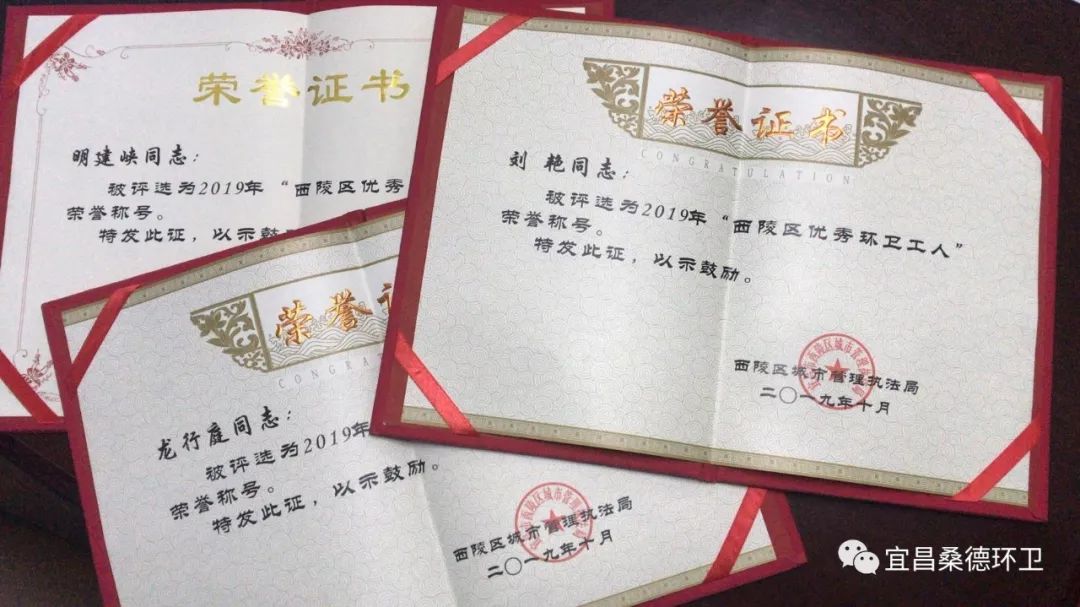 荣誉证书
明建峡同志：
被评选为2019年“西陵区优秀
荣誉称号。
特发此证，以示鼓励
荣誉证书
CONGRATULATION
刘 艳同志：
被评选为2019年“西陵区优秀环卫工人”
荣誉称号。
特发此证，以示鼓励。
西陵区城市管理执法局
二〇一九年十月
荣誉证
CONGRATU
龙行庭同志：
被评选为2019年
荣誉称号。
特发此证，以示鼓励。
西陵区城市管理执法局
二〇一九年十月
宜昌桑德环卫